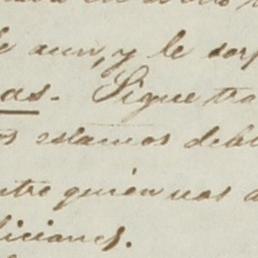 aun, y le
as. Sigue tra
os estamos deb
tre quién nos a
liciones.